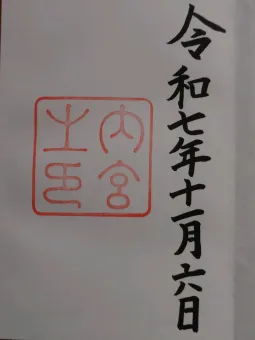 令和七年十一月六日
内宮
之印